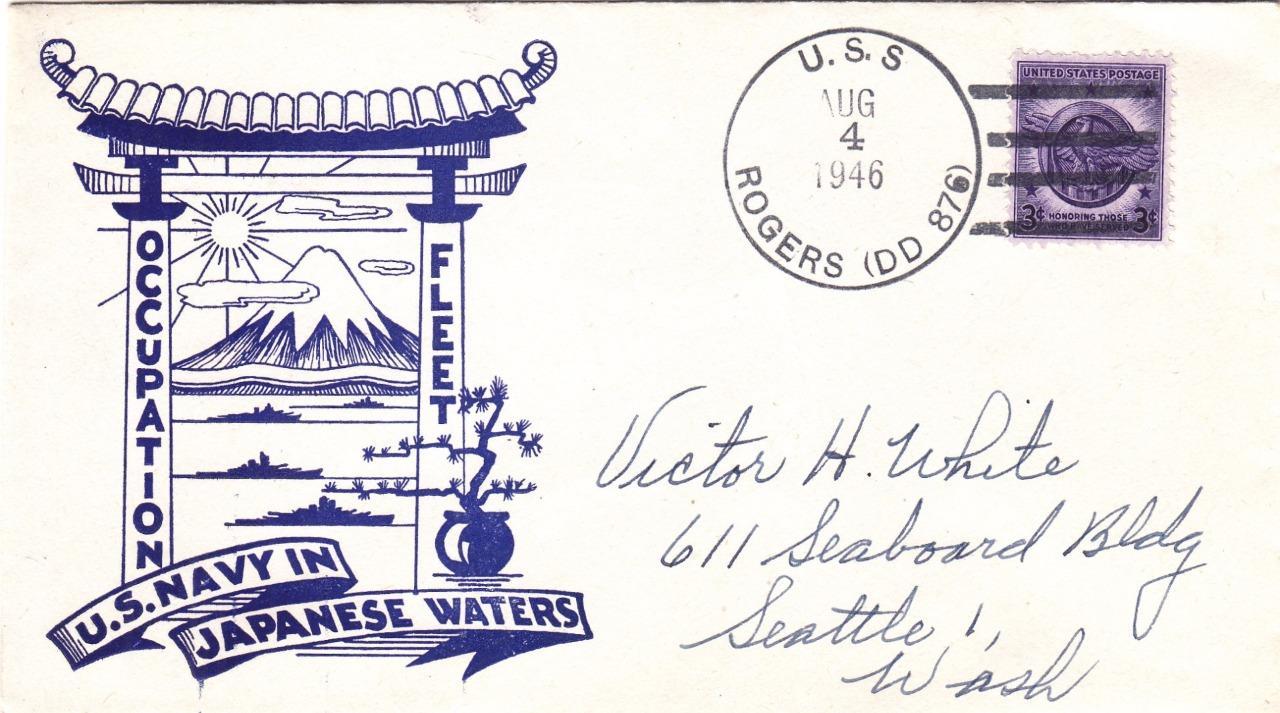 OCCUPATION
FLEET
U.S. NAVY IN
JAPANESE WATERS
U.S.S
AUG
4
1946
ROGERS (DD 876)
UNITED STATES POSTAGE
3¢ HONORING THOSE 3¢
WHO HAVE SERVED
Victor H. White
611 Seaboard Bldg
Seattle 1,
Wash